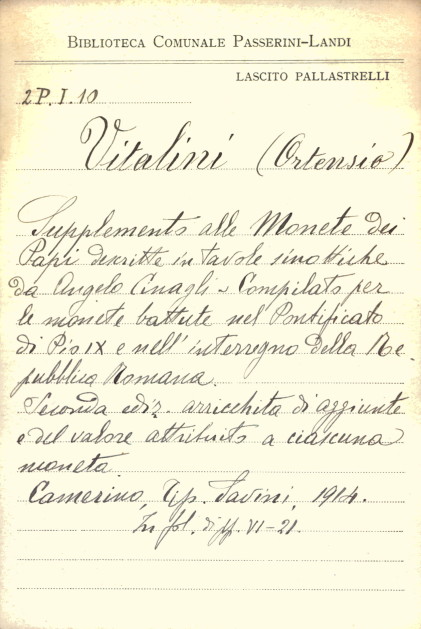 BIBLIOTECA COMUNALE PASSERINI-LANDI
LASCITO PALLASTRELLI
2P.I.10
Vitalini (Ortensio)
Supplemento alle Monete dei
Papi descritte in tavole sinottiche
da Angelo Cinagli - Compilato per
le monete battute nel Pontificato
di Pio IX e nell'interregno della Re-
pubblica Romana.
Seconda ediz. arricchita di aggiunte
e del valore attribuito a ciascuna
moneta.
Camerino, Tip. Savini, 1914.
In fol. di pp. VI-21.